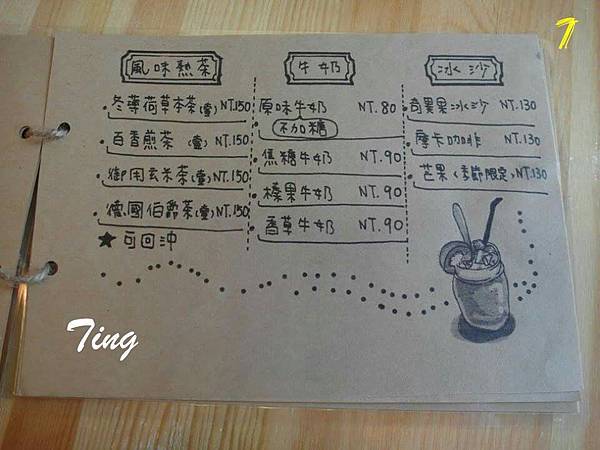 7
風味熱茶
冬薄荷草本茶(壺)NT.150
百香煎茶(壺)NT.150
御用玄米茶(壺)NT.150
德國伯爵茶(壺)NT.150
★可回沖
牛奶
原味牛奶 NT.80
不加糖
焦糖牛奶 NT.90
榛果牛奶 NT.90
香草牛奶 NT.90
冰沙
奇異果冰沙 NT.130
摩卡咖啡 NT.130
芒果(季節限定)NT.130
Ting